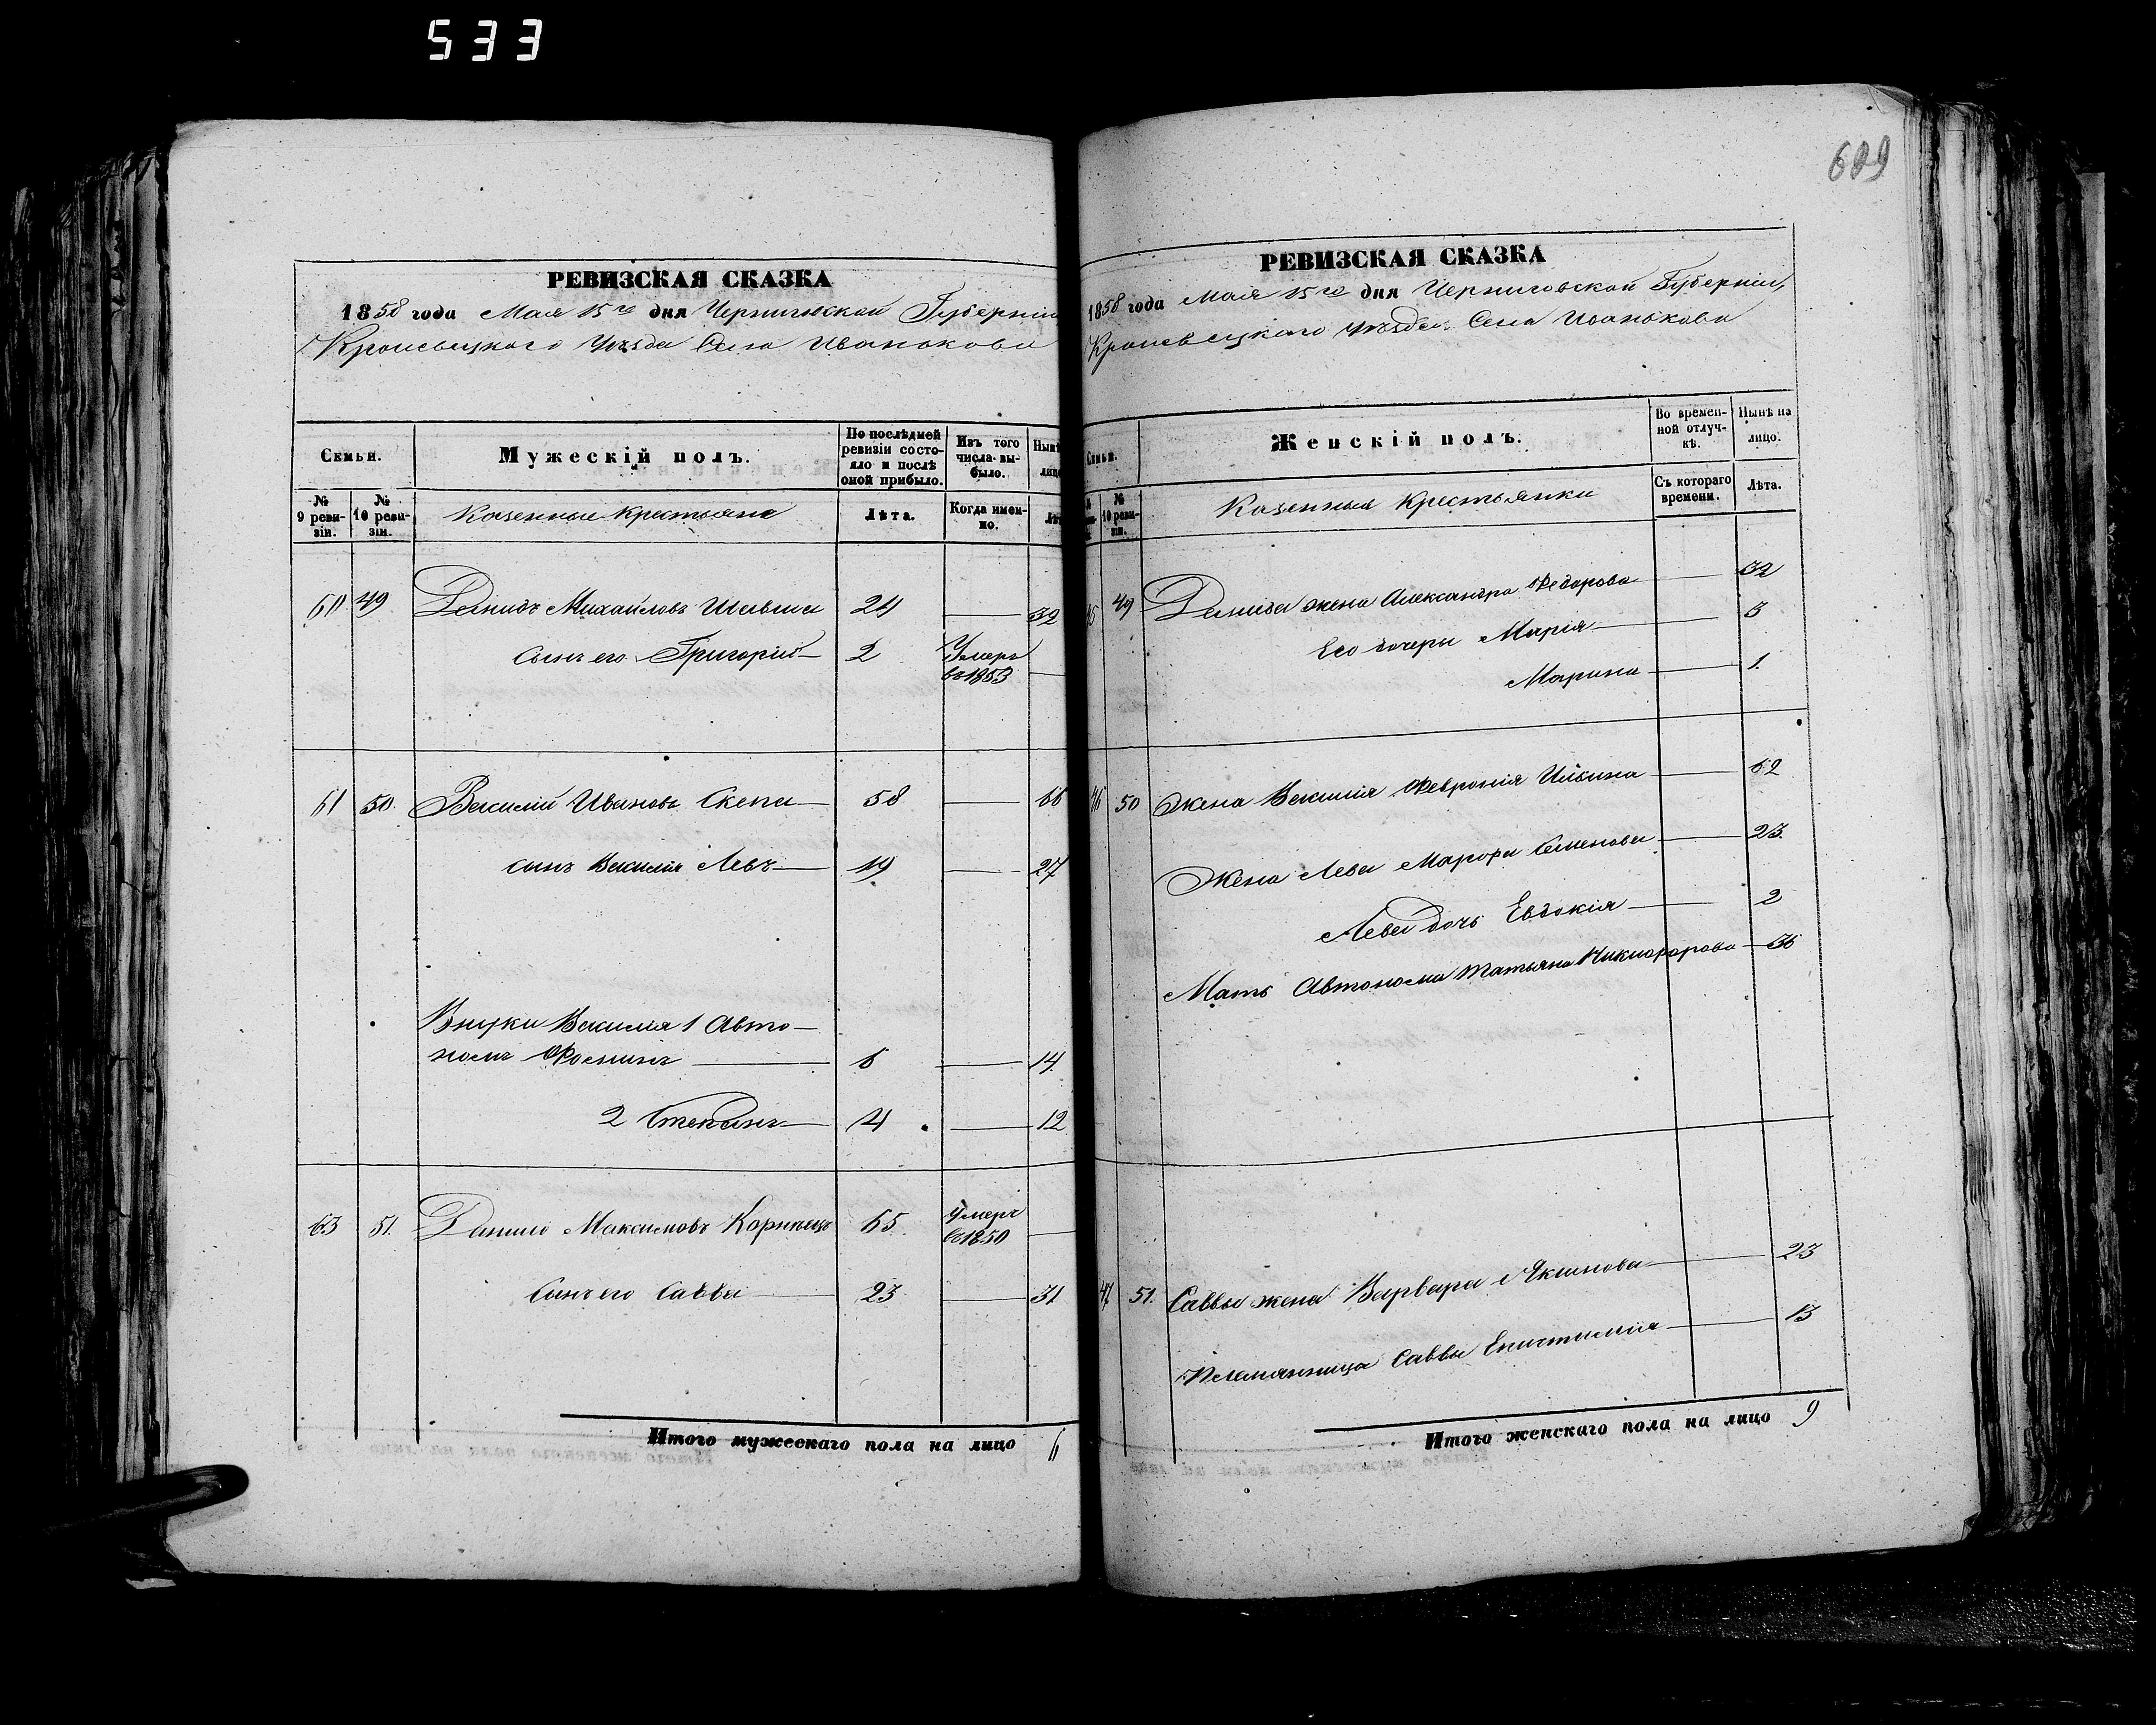 533
609
РЕВИЗСКАЯ СКАЗКА
1858 года Мая 15го дня Черниговской Губерніи
Кролевецкого Уѣзда Села Иванькова
Семьи.
Мужескій полъ.
По послѣдней ревизіи состояло и послѣ оной прибыло.
Изъ того числа выбыло.
Нынѣ лицо
№ 9 ревизіи.
№ 10 ревизіи.
Казенные крестьяне
Лѣта.
Когда именно.
60 49 Демидъ Михайловъ 24 32
Сынъ его Григорій 2 Умеръ въ 1853
61 50. Василій Ивановъ Скепа 58 66
сынъ Василія Левъ 19 27
Внуки Василія 1 Авто-
номъ Фоминъ 6 14
2 Степанъ 4 12
63 51. Данило Максимовъ Коринець 65 Умеръ въ 1850
Сынъ его Савва 23 31
Итого мужескаго пола на лицо 6
РЕВИЗСКАЯ СКАЗКА
1858 года Мая 15го дня Черниговской Губерніи,
Кролевецкаго Уѣзда Села Иванькова
Семьи.
Женскій полъ.
Во временной отлучкѣ.
Нынѣ на лицо.
10 ревизіи.
Казенныя Крестьянки
Съ котораго времени.
Лѣта.
45 49 Демида жена Александра Федорова 32
Его дочери Марія 5
Марина 1.
46 50 Жена Василія Февронія Ильина 62
Жена Лева Марфа Семенова 23.
Лева дочь Евдокія 2
Мать Автонома Татьяна Никифорова 36
47 51. Саввы жена Варвара Якимова 23
Племянница Саввы Епистимія 13
Итого женскаго пола на лицо 9